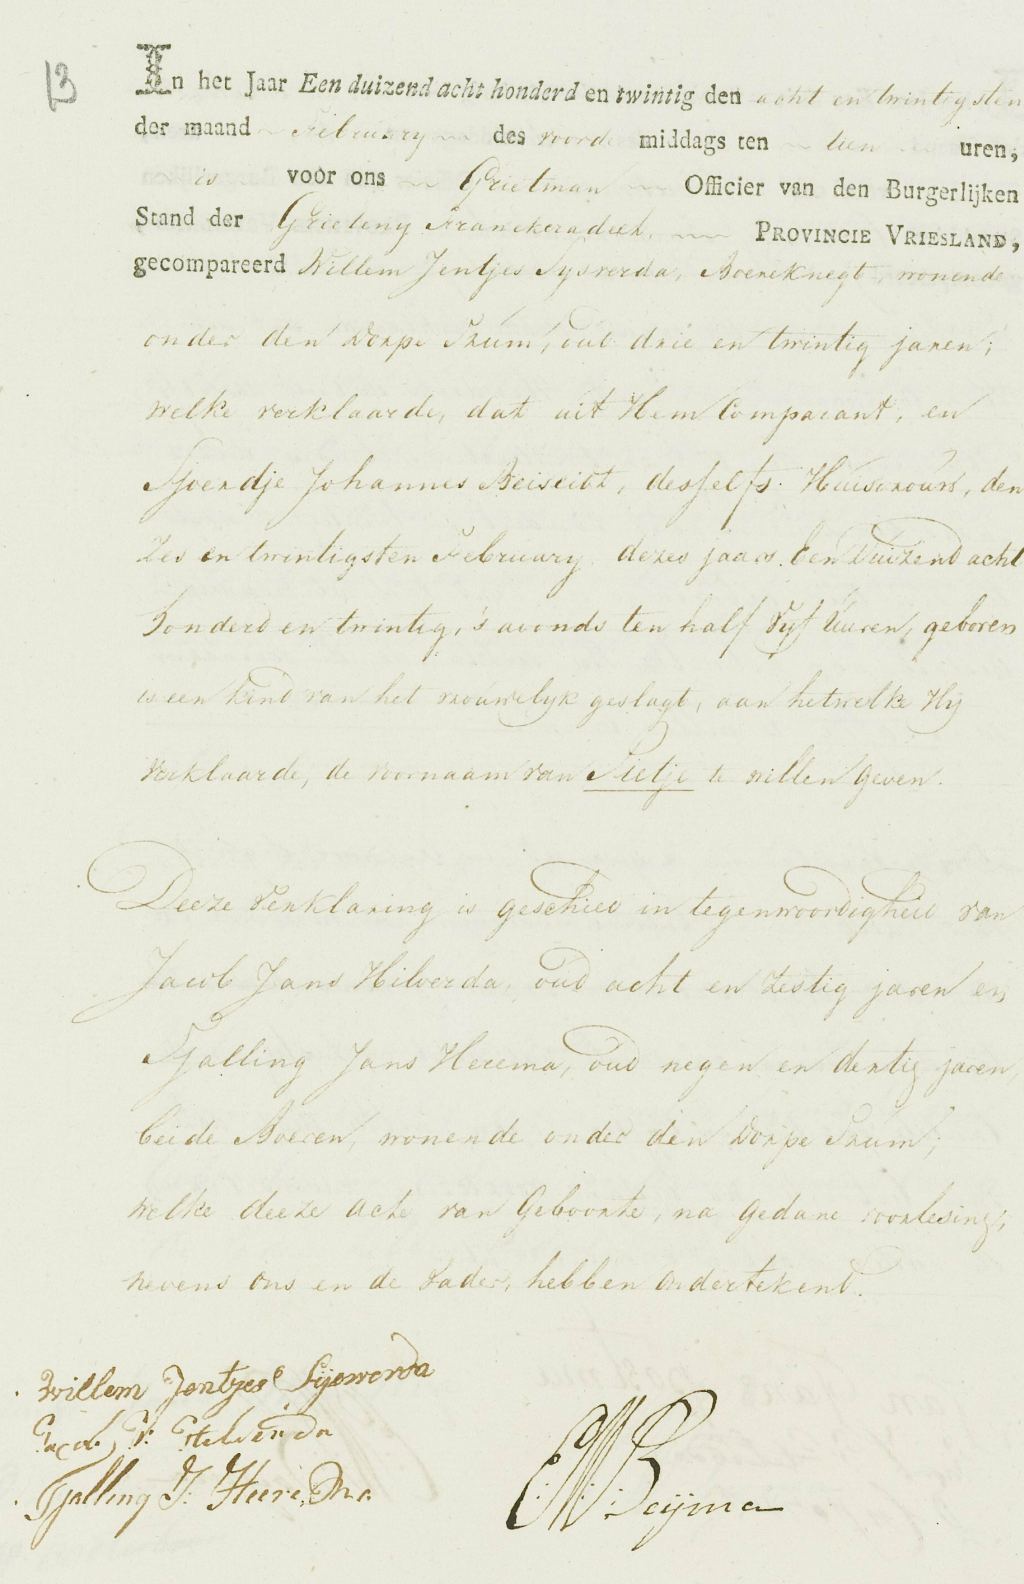 13
In het Jaar Een duizend acht honderd en twintig den acht en twintigsten
der maand February des voorde middags ten tien uren,
is voor ons Grietman Officier van den Burgerlijken
Stand der Grieteny Franekeradeel. PROVINCIE VRIESLAND,
gecompareerd Willem Jentjes Sysworda, Boereknegt, wonende
onder den Dorpe Tzum, oud drie en twintig jaren;
welke verklaarde, dat uit Hem Comparant, en
Sjoerdje Johannes, desselfs Huisvrouw, den
Zes en twintigsten February dezes jaars Een Duizend acht
honderd en twintig, 's avonds ten half Vyf Uuren, geboren
is een kind van het vrouwelyk geslagt, aan hetwelke Hy
verklaarde, de voornaam van Sietje te willen geven.
Deeze Verklaring is geschied in tegenwoordigheid van
Jacob Jans Hilverda, oud acht en zestig jaren en
Tjalling Jans Herema, oud negen en dertig jaren,
beide Boeren, wonende onder den Dorpe Tzum;
welke deeze acte van Geboorte, na gedane voorlesing,
nevens ons en de Vader, hebben ondertekend.
Willem Jentjes Sijsworda
Jacob J: Helverda
Tjalling J: Heerema
Beijma